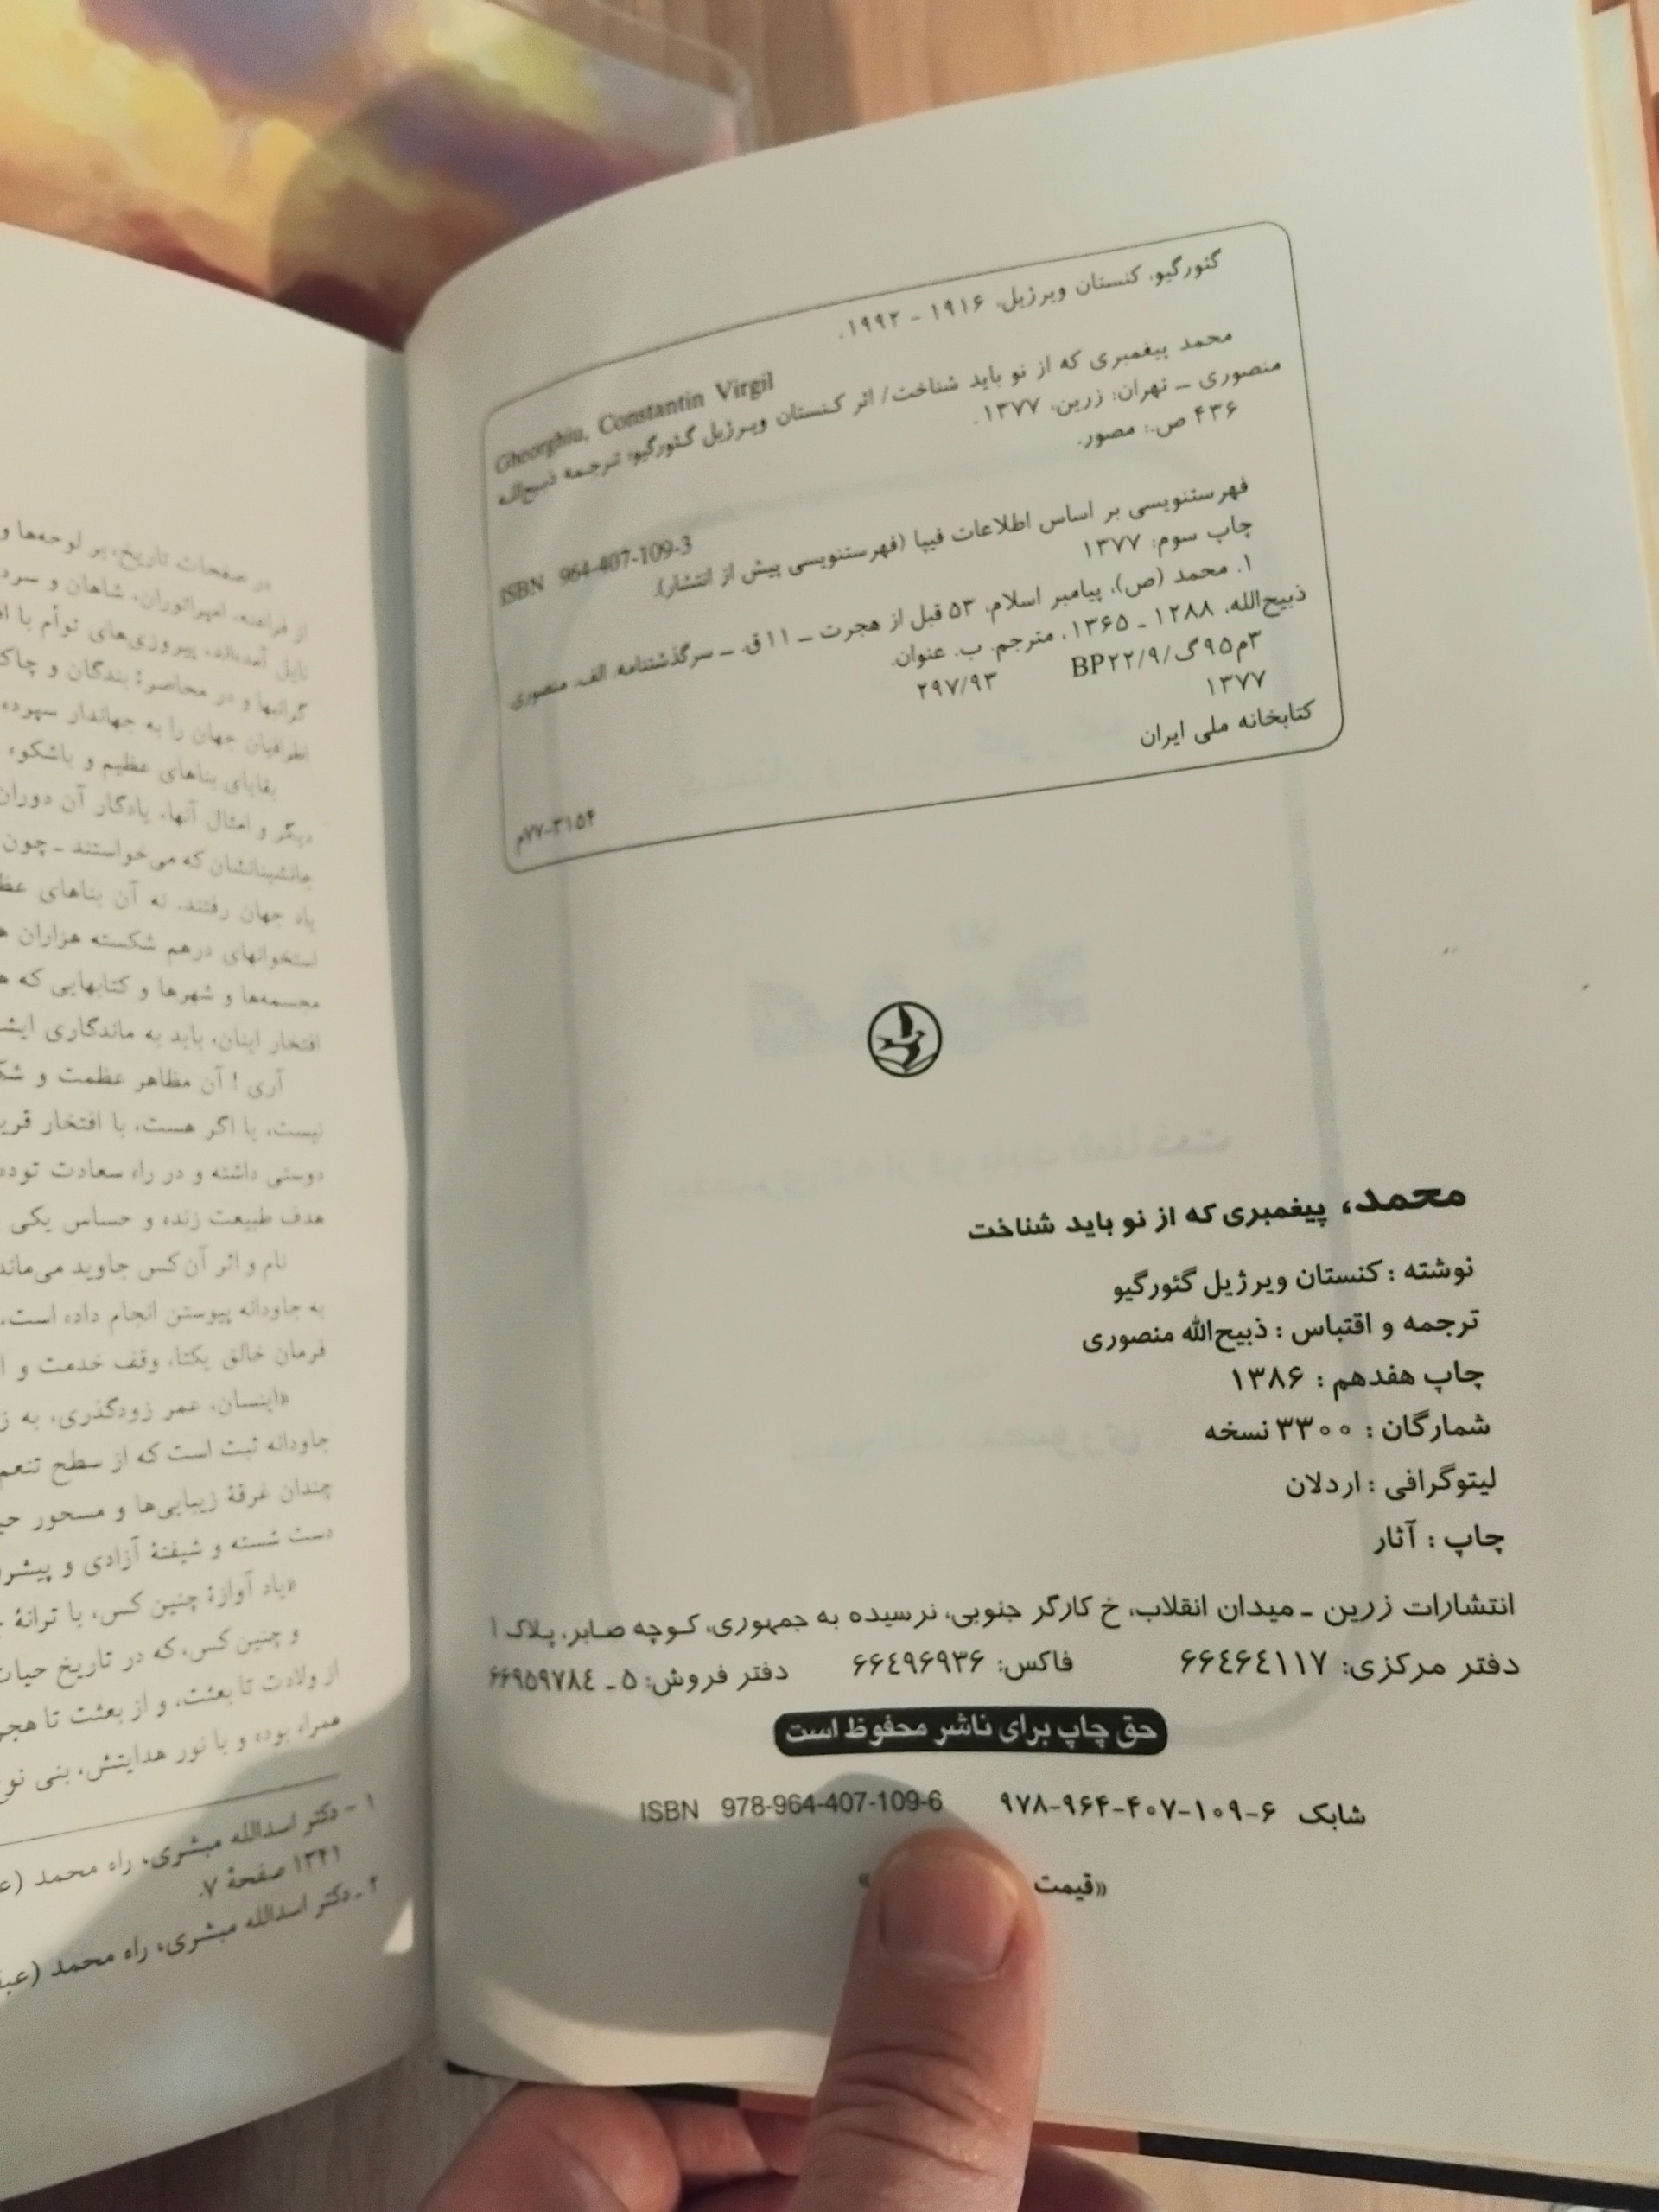 گئورگیو، کنستان ویرژیل، ۱۹۱۶ - ۱۹۹۲.
Gheorghiu, Constantin Virgil
محمد پیغمبری که از نو باید شناخت/ اثر کنستان ویرژیل گئورگیو؛ ترجمه ذبیح‌الله
منصوری ــ تهران: زرین، ۱۳۷۷.
۴۳۶ ص.: مصور.
ISBN 964-407-109-3
فهرستنویسی بر اساس اطلاعات فیپا (فهرستنویسی پیش از انتشار).
چاپ سوم: ۱۳۷۷
۱. محمد (ص)، پیامبر اسلام، ۵۳ قبل از هجرت ــ ۱۱ ق. ــ سرگذشتنامه. الف. منصوری
ذبیح‌الله، ۱۲۸۸ - ۱۳۶۵، مترجم. ب. عنوان.
۳م۹۵گ/۹/BP۲۲ ۲۹۷/۹۳
۱۳۷۷
کتابخانه ملی ایران
۷۷-۳۱۵۴م
محمد، پیغمبری که از نو باید شناخت
نوشته : کنستان ویرژیل گئورگیو
ترجمه و اقتباس : ذبیح‌الله منصوری
چاپ هفدهم : ۱۳۸۶
شمارگان : ۳۳۰۰ نسخه
لیتوگرافی : اردلان
چاپ : آثار
انتشارات زرین ـ میدان انقلاب، خ کارگر جنوبی، نرسیده به جمهوری، کوچه صابر، پلاک ۱
دفتر مرکزی: ۶۶٤۶٤۱۱۷ فاکس: ۶۶٤۹۶۹۳۶ دفتر فروش: ۵ ـ ۶۶۹۵۹۷۸٤
حق چاپ برای ناشر محفوظ است
شابک ۹۷۸-۹۶۴-۴۰۷-۱۰۹-۶ ISBN 978-964-407-109-6
«قیمت »
در صفحات تاریخ، بر لوحه‌ها و
از فراعنه، امپراتوران، شاهان و سرد
نایل آمده‌اند، پیروزی‌های توأم با
گرانبها و در محاصرهٔ بندگان و چاک
اطرافیان جهان را به جهاندار سپرده
بقایای بناهای عظیم و باشکوه
دیگر و امثال آنها، یادگار آن دوران
جانشینانشان که می‌خواستند ـ چون
یاد جهان رفتند، نه آن بناهای عظ
استخوانهای درهم شکسته هزاران
مجسمه‌ها و شهرها و کتابهایی که
افتخار اینان، باید به ماندگاری ایش
آری ! آن مظاهر عظمت و شک
نیست، یا اگر هست، با افتخار قری
دوستی داشته و در راه سعادت توده
هدف طبیعت زنده و حساس یکی
نام و اثر آن کس جاوید می‌ماند
به جاودانه پیوستن انجام داده است،
فرمان خالق یکتا، وقف خدمت و ا
«اینسان، عمر زودگذری، به ز
جاودانه ثبت است که از سطح تنعم
چندان غرقهٔ زیبایی‌ها و مسحور حی
دست شسته و شیفتهٔ آزادی و پیشر
«یاد آوازهٔ چنین کس، با ترانهٔ
و چنین کس، که در تاریخ حیات
از ولادت تا بعثت، و از بعثت تا هجر
همراه بوده و با نور هدایتش، بنی نوع
۱ - دکتر اسدالله مبشری، راه محمد (ع
۱۳۴۱ صفحهٔ ۷.
۲ ـ دکتر اسدالله مبشری، راه محمد (عبق